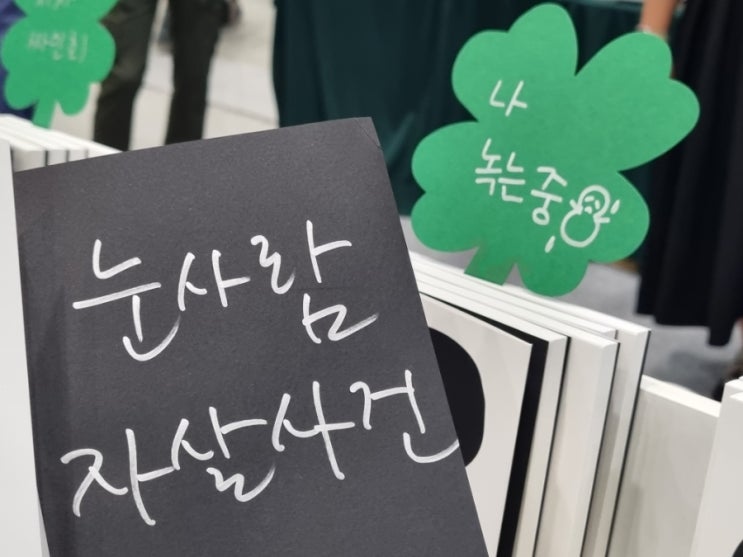 나
녹는 중
눈사람
자살사건